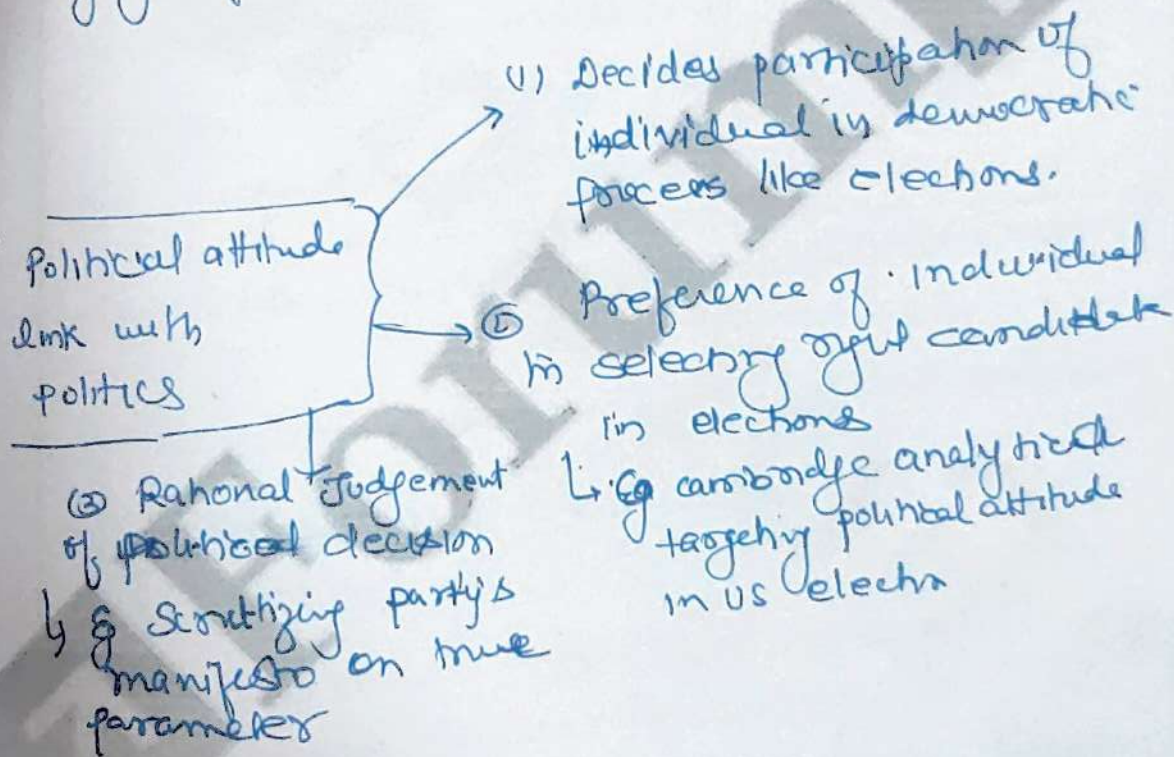 Political attitude
link with
politics
(1) Decides participation of
individual in democratic
process like elections.
② Preference of individual
in selecting right candidate
in elections
↳ eg cambridge analytica
targeting political attitude
in US electn
③ Rational Judgement
of political decision
↳ eg Scrutinizing party's
manifesto on true
parameter